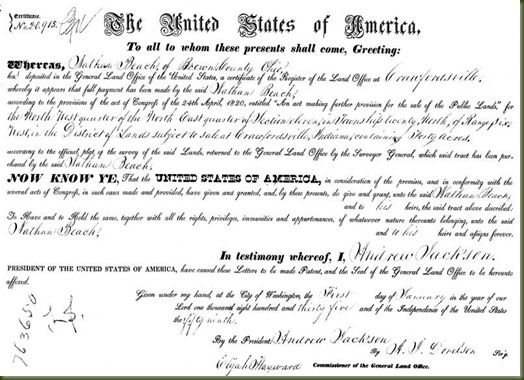 Certificate
No. 20,913.
The United States of America.
To all to whom these presents shall come, Greeting:
Whereas, Nathan Beach, of Brown County Ohio,
has deposited in the General Land Office of the United States, a certificate of the Register of the Land Office at Crawfordsville,
whereby it appears that full payment has been made by the said Nathan Beach,
according to the provisions of the act of Congress of the 24th April, 1820, entitled "An act making further provision for the sale of the Public Lands," for
the North West quarter of the North East quarter of Section eleven, in Township twenty, North, of Range six,
West, in the District of Lands subject to sale at Crawfordsville, Indiana, containing Forty Acres,
according to the official plat of the survey of the said Lands, returned to the General Land Office by the Surveyor General, which said tract has been pur-
chased by the said Nathan Beach,
NOW KNOW YE, That the UNITED STATES OF AMERICA, in consideration of the premises, and in conformity with the
several acts of Congress, in such case made and provided, have given and granted, and, by these presents, do give and grant, unto the said Nathan Beach,
and to his heirs, the said tract above described:
To Have and to Hold the same, together with all the rights, privileges, immunities and appurtenances, of whatsoever nature thereunto belonging, unto the said
Nathan Beach, and to his heirs and assigns forever.
In testimony whereof, I, Andrew Jackson,
PRESIDENT OF THE UNITED STATES OF AMERICA, have caused these Letters to be made Patent, and the Seal of the General Land Office to be hereunto
affixed.
Given under my hand, at the City of Washington, the First day of January in the year of our
Lord one thousand eight hundred and thirty five and of the Independence of the United States
the fifty ninth.
By the President: Andrew Jackson
By A. J. Donelson Sec'y.
Elijah Hayward Commissioner of the General Land Office.
763650